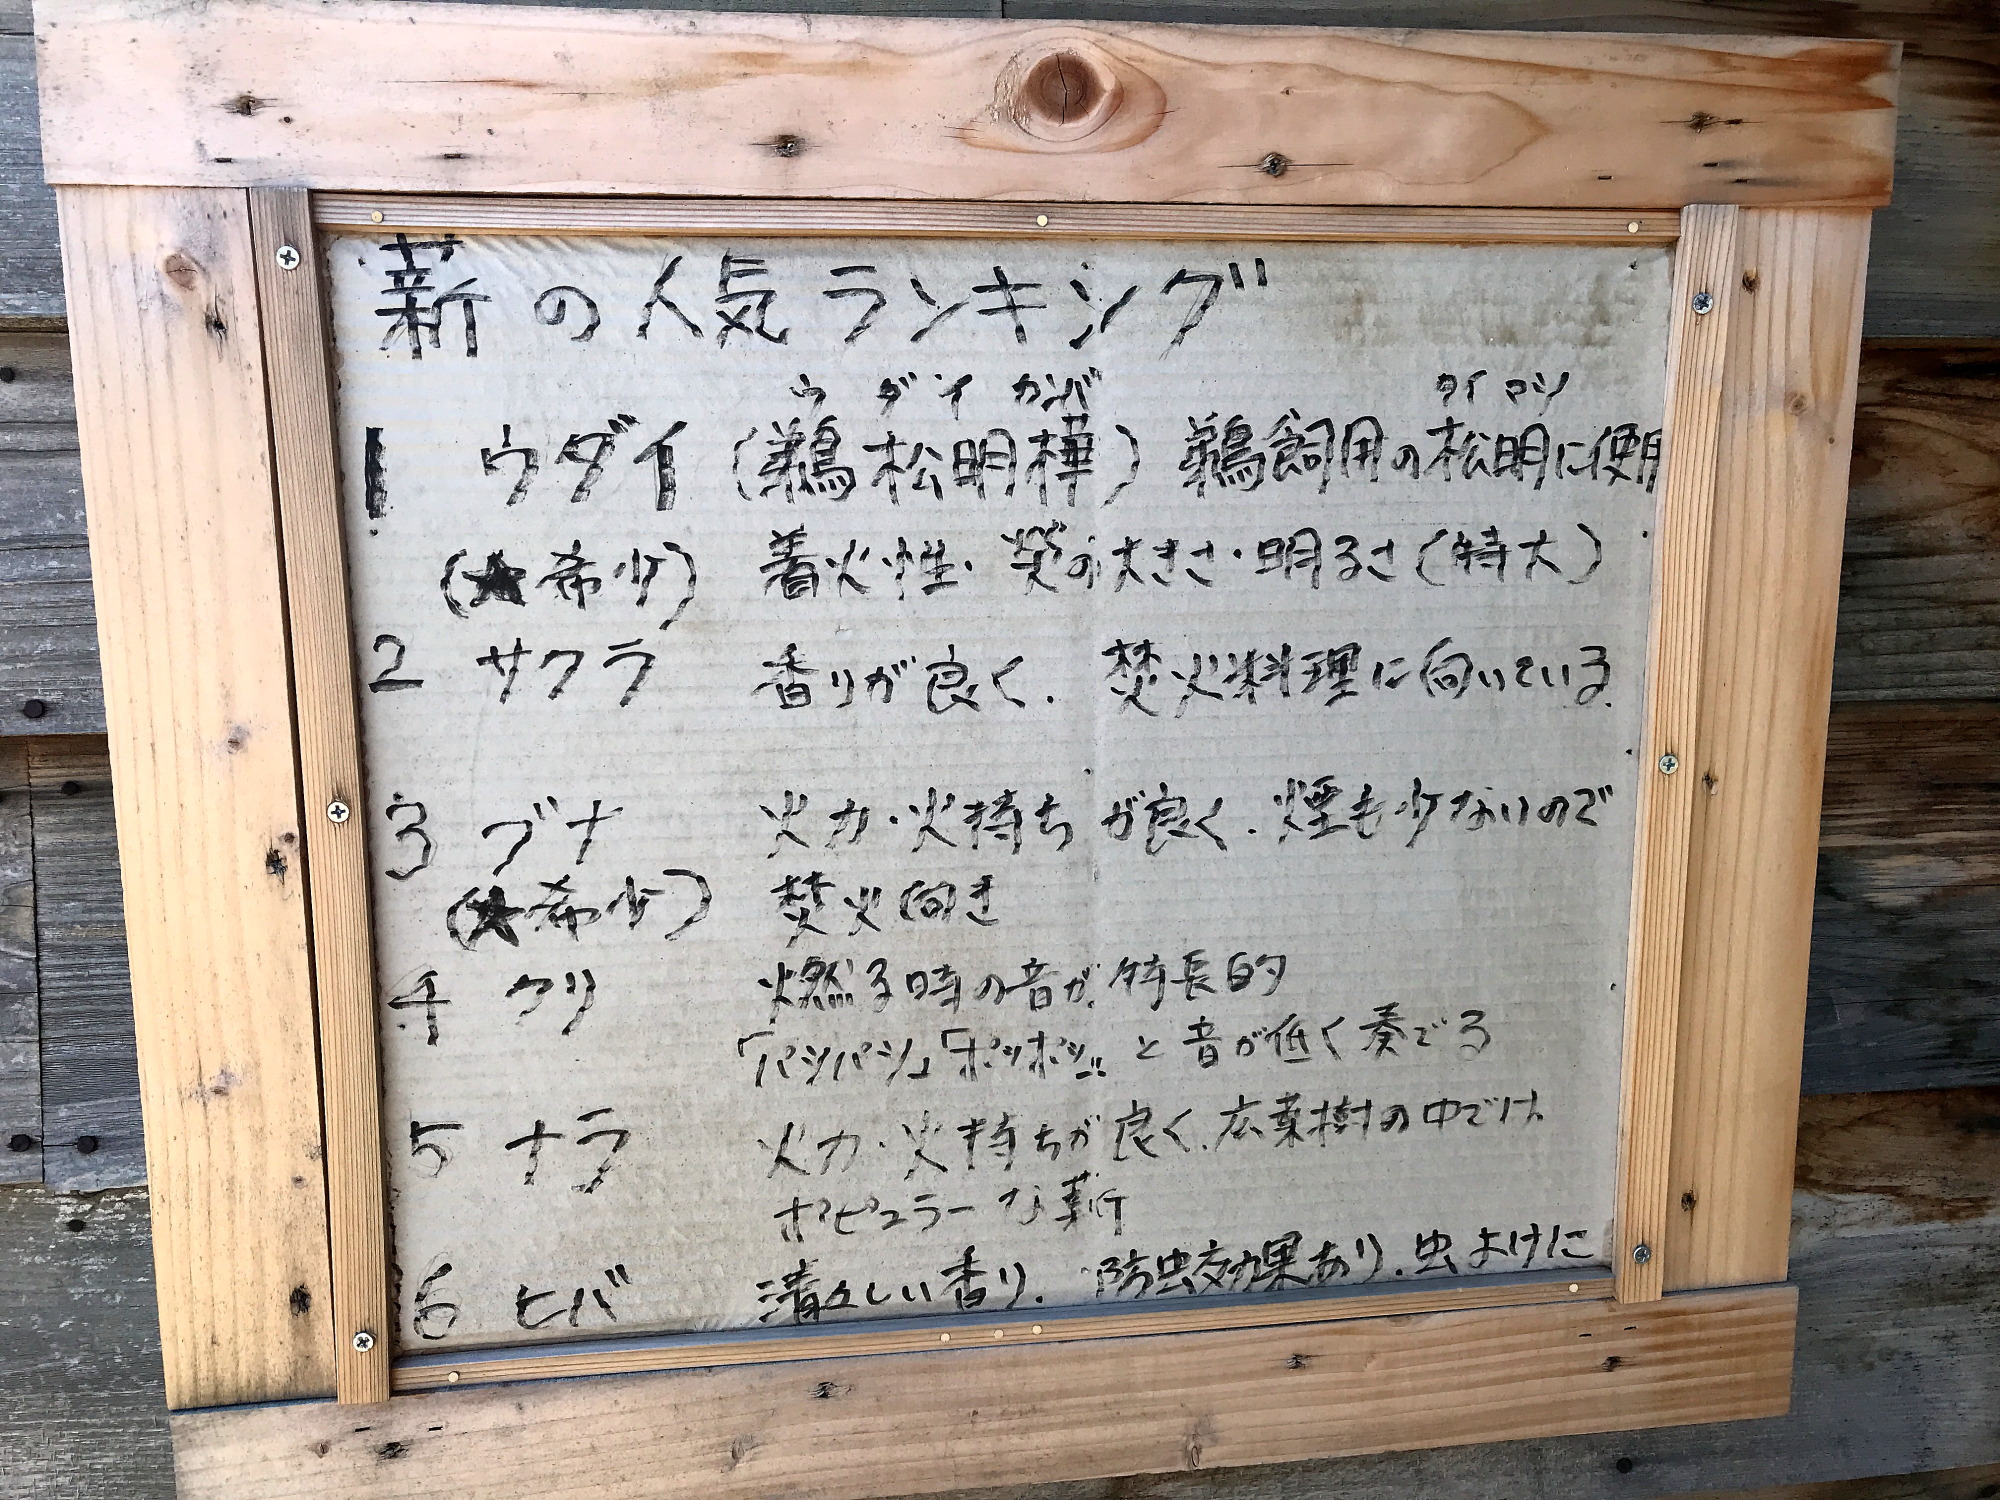 薪の人気ランキング
ウダイカンバ タイマツ
1 ウダイ (鵜松明樺) 鵜飼用の松明に使用
(★希少) 着火性・炎の大きさ・明るさ(特大)
2 サクラ 香りが良く、焚火料理に向いている。
3 ブナ 火力・火持ちが良く、煙も少ないので
(★希少) 焚火向き
4 クリ 燃る時の音が、特長的
「パシパシ」「ポッポッ」と音が低く奏でる
5 ナラ 火力・火持ちが良く、広葉樹の中では
ポピュラーな薪
6 ヒバ 清々しい香り、防虫効果あり、虫よけに